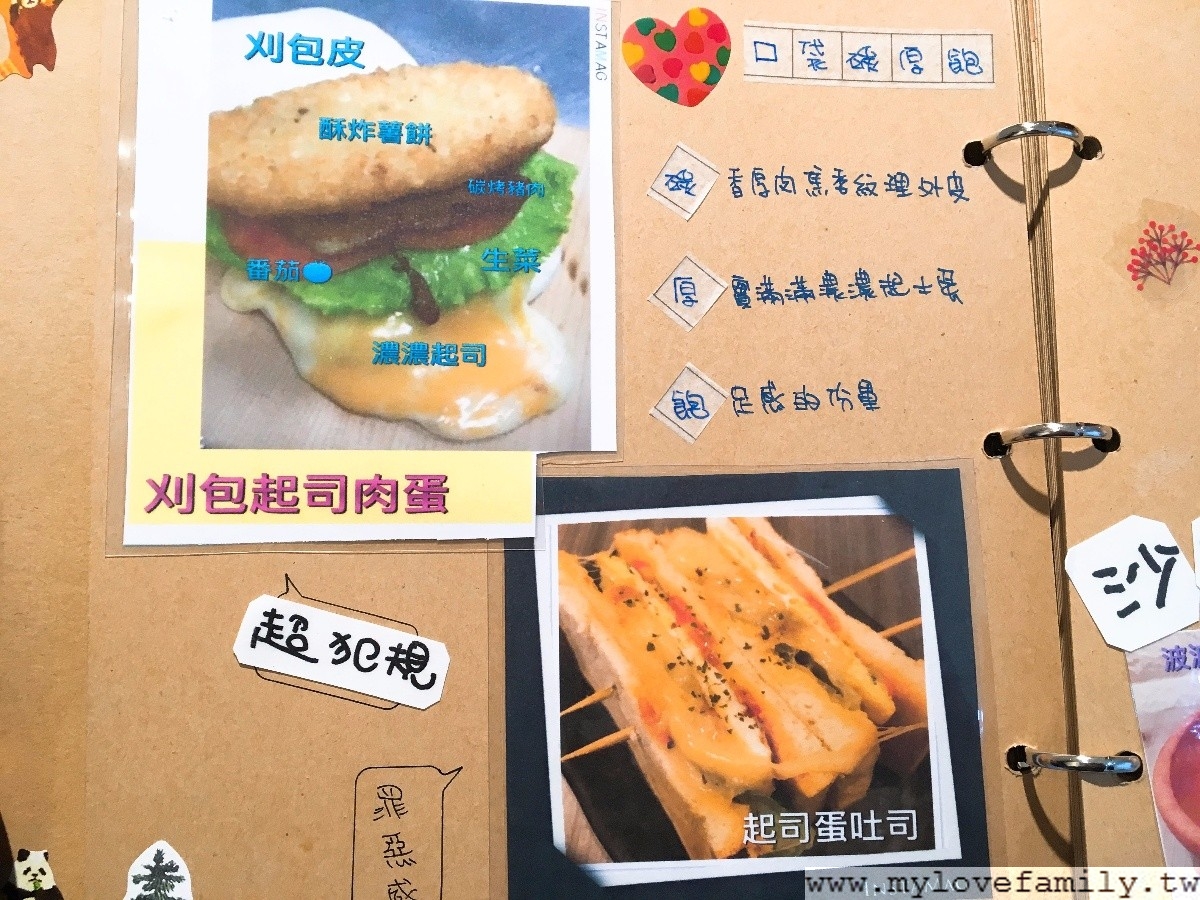 刈包皮
酥炸薯餅
碳烤豬肉
番茄
生菜
濃濃起司
刈包起司肉蛋
INSTAMAG
口袋碳厚飽
碳 香厚肉焦香紋理外皮
厚 實滿滿濃濃起士蛋
飽 足感的份量
超犯規
罪惡感
起司蛋吐司
沙
波波
www.mylovefamily.tw